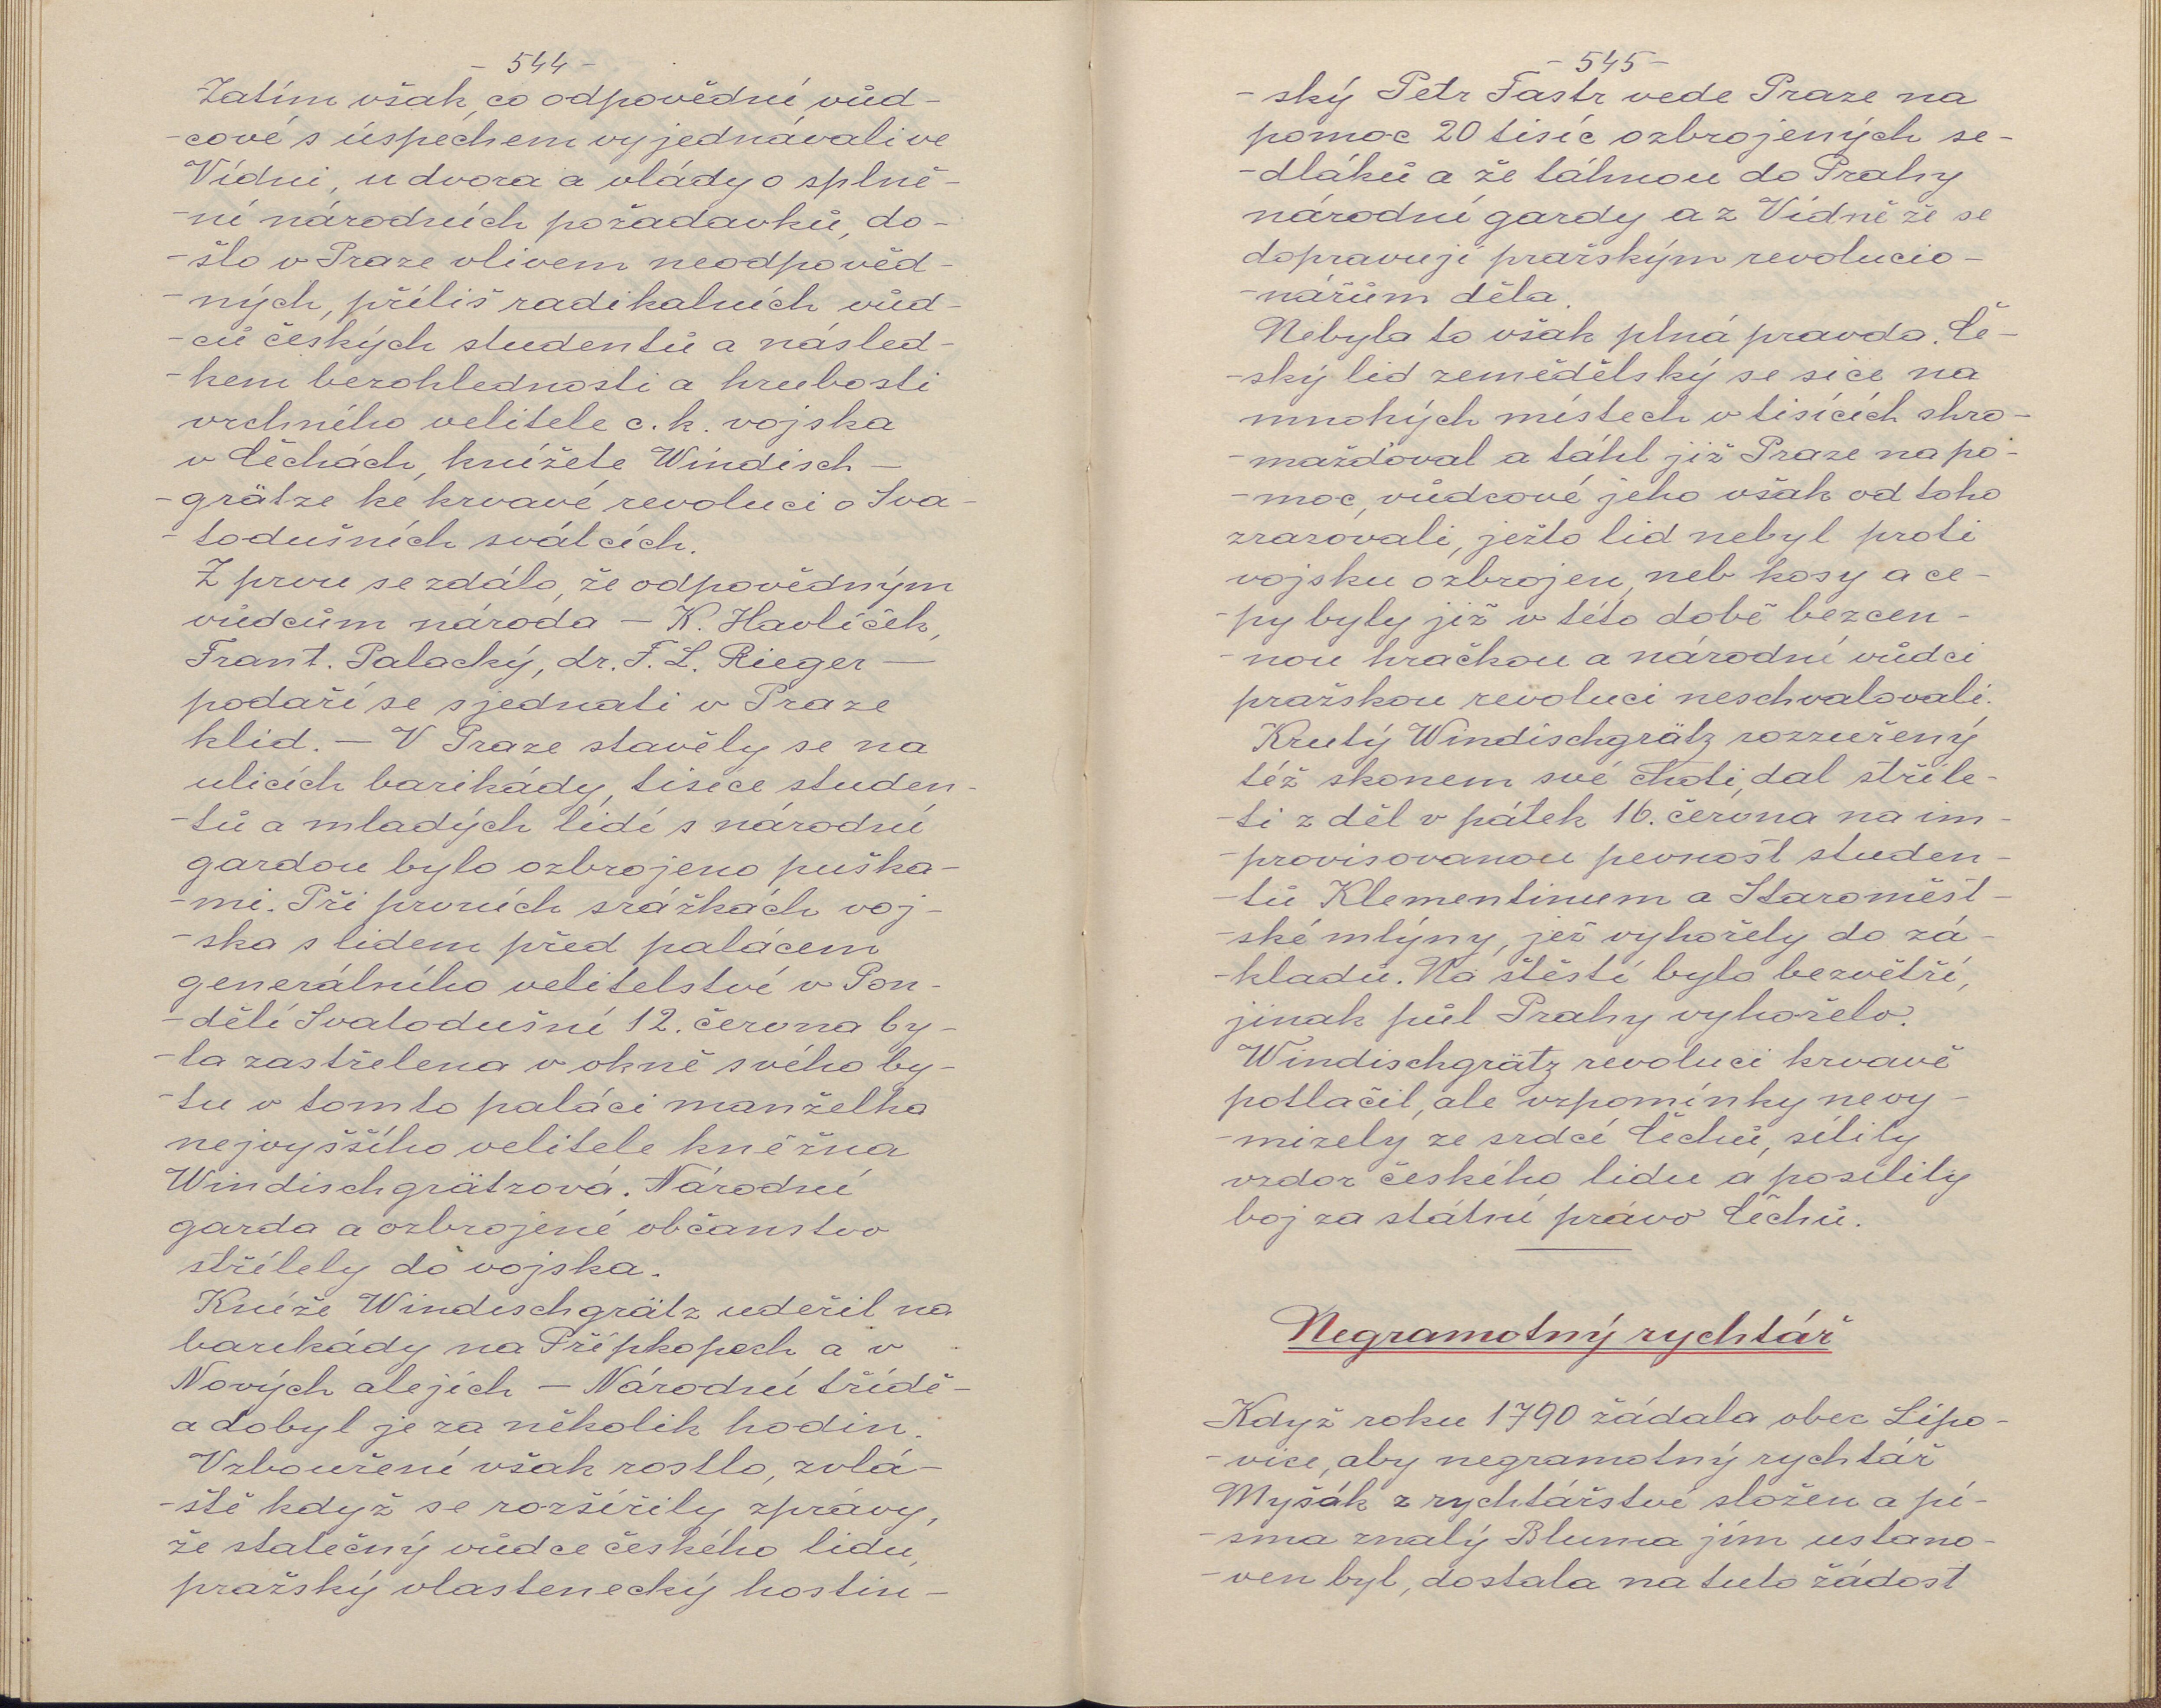 - 544 -
Zatím však, co odpovědní vůd-
-cové s úspěchem vyjednávali ve
Vídni, u dvora a vlády o splně-
-ní národních požadavků, do-
-šlo v Praze vlivem neodpověd-
-ných, příliš radikalních vůd-
-ců českých studentů a násled-
-kem bezohlednosti a hrubosti
vrchního velitele c. k. vojska
v Čechách, knížete Windisch-
-grätze ke krvavé revoluci o Sva-
-todušních svátcích.
Z prvu se zdálo, že odpovědným
vůdcům národa - K. Havlíček,
Frant. Palacký, dr. F. L. Rieger -
podaří se sjednati v Praze
klid. - V Praze stavěly se na
ulicích barikády, tisíce studen-
-tů a mladých lidí s národní
gardou bylo ozbrojeno puška-
-mi. Při prvních srážkách voj-
-ska s lidem před palácem
generálního velitelství v Pon-
-dělí Svatodušní 12. června by-
-la zastřelena v okně svého by-
-tu v tomto paláci manželka
nejvyššího velitele kněžna
Windischgrätzová. Národní
garda a ozbrojené občanstvo
střílely do vojska.
Kníže Windischgrätz udeřil na
barikády na Přípkopech a v
Nových alejích - Národní třídě-
a dobyl je za několik hodin.
Vzbouření však rostlo, zvlá-
-ště když se rozšířily zprávy,
že statečný vůdce českého lidu,
pražský vlastenecký hostin-
- 545 -
-ský Petr Fastr vede Praze na
pomoc 20 tisíc ozbrojených se-
-dláků a že táhnou do Prahy
národní gardy a z Vídně že se
dopravují pražským revolucio-
-nářům děla.
Nebyla to však plná pravda. Če-
-ský lid zemědělský se sice na
mnohých místech v tisících shro-
-mažďoval a táhl již Praze na po-
-moc, vůdcové jeho však od toho
zrazovali, ježto lid nebyl proti
vojsku ozbrojen, neb kosy a ce-
-py byly již v této době bezcen-
-nou hračkou a národní vůdci
pražskou revoluci neschvalovali.
Krutý Windischgrätz rozzuřený
též skonem své choti, dal stříle-
-ti z děl v pátek 16. června na im-
-provisovanou pevnost studen-
-tů Klementinum a Staroměst-
-ské mlýny, jež vyhořely do zá-
-kladů. Na štěstí bylo bezvětří,
jinak půl Prahy vyhořelo.
Windischgrätz revoluci krvavě
potlačil, ale vzpomínky nevy-
-mizely ze srdcí Čechů, sílily
vzdor českého lidu a posílily
boj za státní právo Čechů.
Negramotný rychtář
Když roku 1790 žádala obec Lipo-
-vice, aby negramotný rychtář
Myšák z rychtářství složen a pí-
-sma znalý Bluma jím ustano-
-ven byl, dostala na tuto žádost